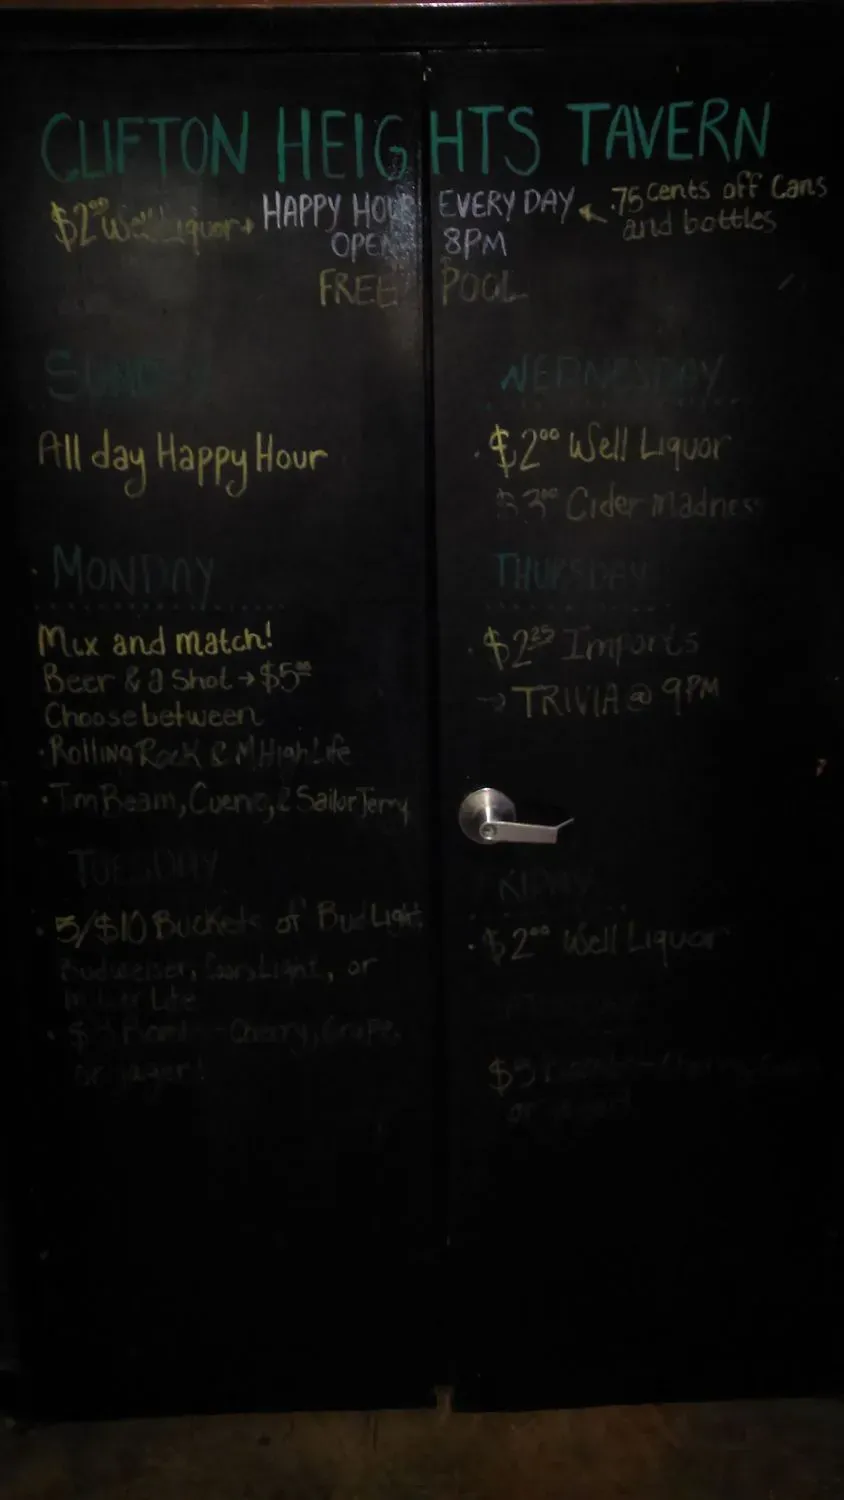 CLIFTON HEIGHTS TAVERN
$2.00 Well Liquor → HAPPY HOUR EVERY DAY ← .75 cents off Cans
and bottles
OPEN 8PM
FREE POOL
SUNDAY
All day Happy Hour
MONDAY
Mix and match!
Beer & a Shot → $5.00
Choose between
· Rolling Rock & M High Life
· Jim Beam, Cuervo, & Sailor Jerry
TUESDAY
· 5/$10 Buckets of Bud Light,
Budweiser, Coors Light, or
Miller Lite
· $3 - Cherry, Grape,
or Jager!
WEDNESDAY
· $2.00 Well Liquor
$3.00 Cider Madness
THURSDAY
· $2.25 Imports
→ TRIVIA @ 9PM
FRIDAY
· $2.00 Well Liquor